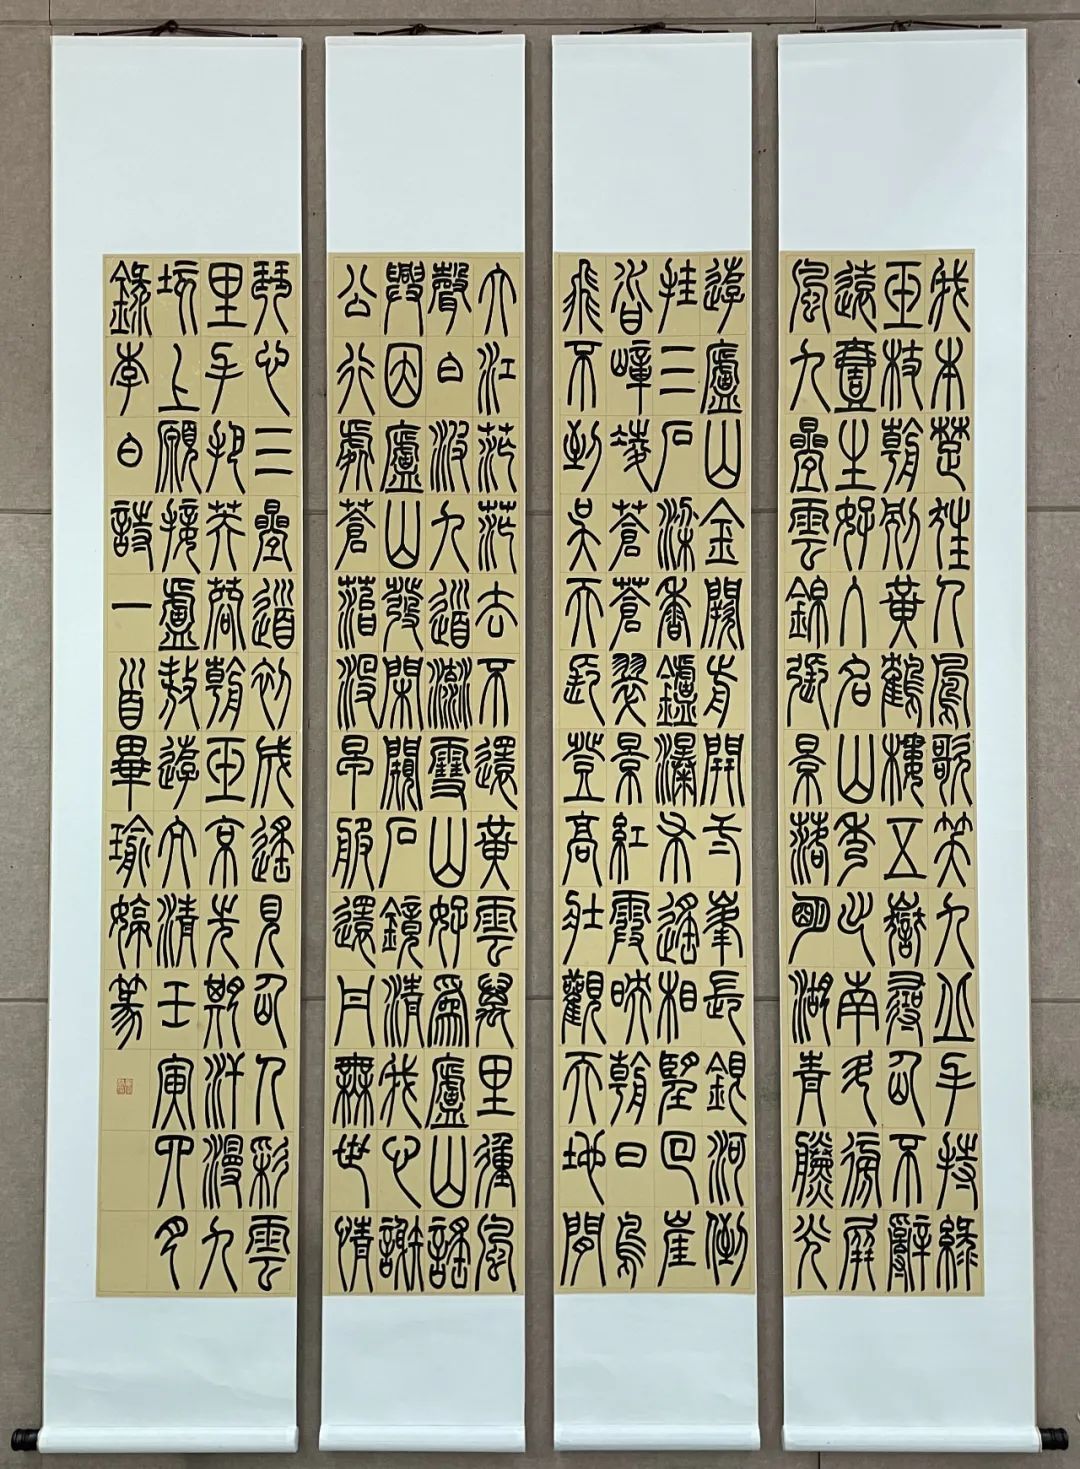 我本楚狂人鳳歌笑孔丘手持綠
玉杖朝別黃鶴樓五嶽尋仙不辭
遠壹生好入名山秀出南斗傍屏
風九疊雲錦張景落明湖青黱光
遊廬山金闕前開二峯長銀河倒
挂三石梁香鑪瀑布遙相望回崖
沓嶂凌蒼蒼翠景紅霞映朝日鳥
飛不到吳天長登高壯觀天地間
大江茫茫去不還黃雲萬里動風
聲白波九道流雪山好為廬山謠
興因廬山發閑闚石鏡清我心謝
公行處蒼苔沒早服還丹無世情
琴心三疊道初成遙見仙人彩雲
里手把芙蓉朝玉京先期汗漫九
垓上願接盧敖遊太清壬寅四月
錄李白詩一首畢瑜婷篆